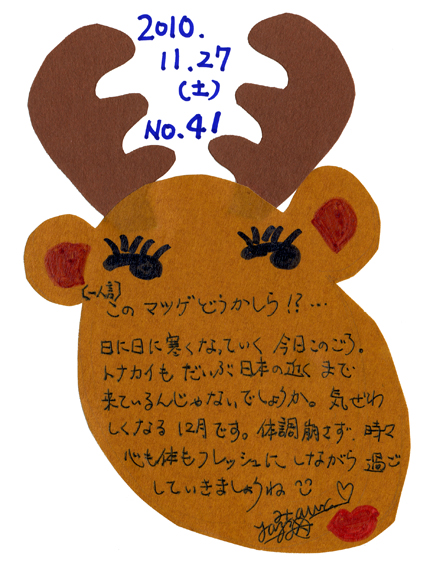 2010.
11.27
(土)
No.41
〔一人言〕
このマツゲどうかしら!?…
日に日に寒くなっていく今日このごろ。
トナカイもだいぶ日本の近くまで
来ているんじゃないでしょうか。気ぜわ
しくなる12月です。体調崩さず、時々
心も体もフレッシュにしながら過ご
していきましょうね